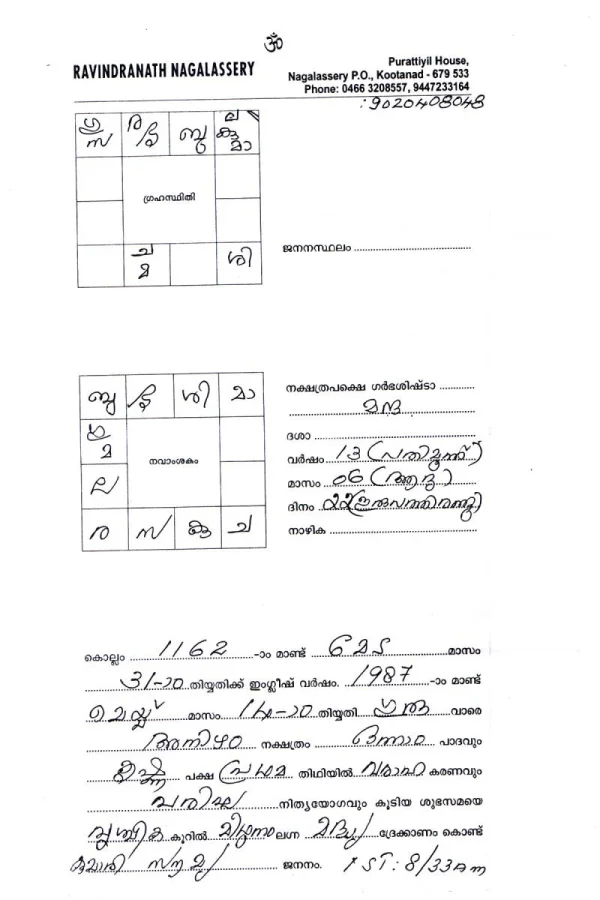 ॐ
RAVINDRANATH NAGALASSERY
Purattiyil House,
Nagalassery P.O., Kootanad - 679 533
Phone: 0466 3208557, 9447233164
: 9020408048
ഗു ര ബു ല
സ ഭൃ കു
മാ
ഗ്രഹസ്ഥിതി
ച ശി
മ
ജനനസ്ഥലം
ബു ഭൃ ശി മാ
ഗു
മ
നവാംശകം
ല
ര സ കു ച
നക്ഷത്രപക്ഷെ ഗർഭശിഷ്ടാ
മന്ദ
ദശാ
വർഷം 13 (പതിമൂന്ന്)
മാസം 06 (ആറു)
ദിനം 22 (ഇരുപത്തിരണ്ടു)
നാഴിക
കൊല്ലം 1162 -ാം മാണ്ട് മേട മാസം
31-ാo തിയ്യതിക്ക് ഇംഗ്ലീഷ് വർഷം. 1987 -ാം മാണ്ട്
മെയ്യ് മാസം 14-ാo തിയ്യതി ഗുരു വാരെ
അനിഴം നക്ഷത്രം ഒന്നാം പാദവും
കൃഷ്ണ പക്ഷ പ്രഥമ തിഥിയിൽ വരാഹ കരണവും
പരിഘ നിത്യയോഗവും കൂടിയ ശുഭസമയെ
വൃശ്ചിക കൂറിൽ മിഥുനം ലഗ്ന മദ്ധ്യ ദ്രേക്കാണം കൊണ്ട്
കുമാരി സൗമ്യ ജനനം. IST: 8/33 am